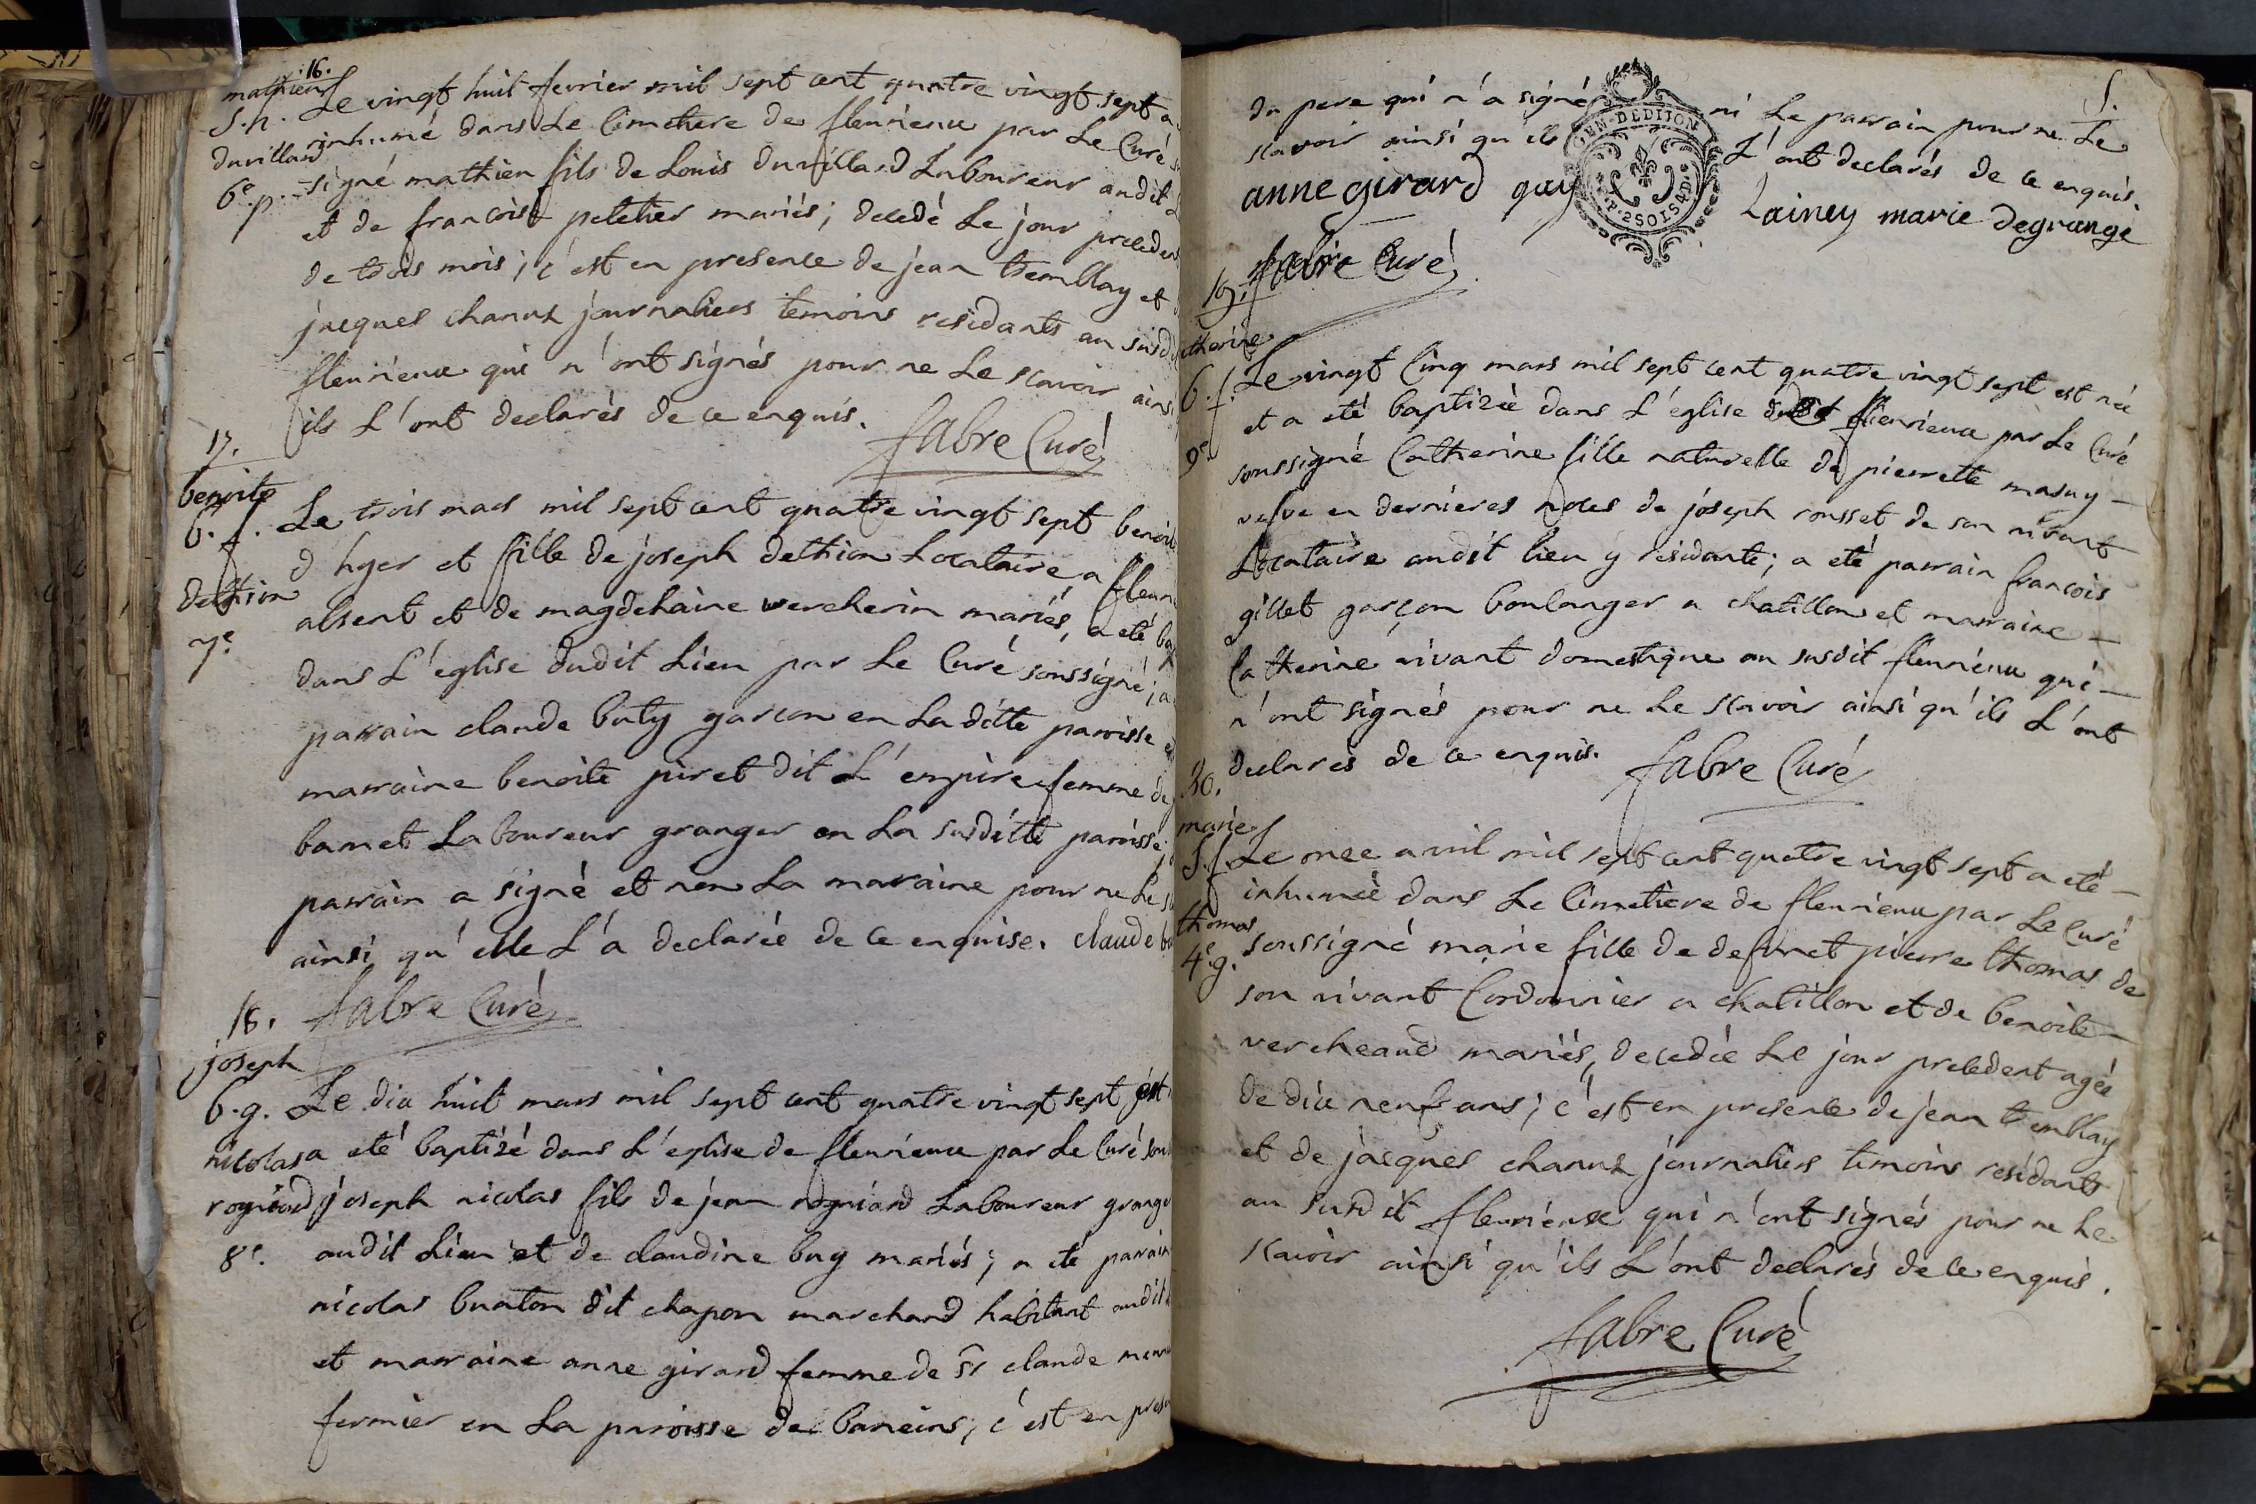 16.
mathieu
S. p.
duvillard
6e. p.
Le vingt huit fevrier mil sept cent quatre vingt sept a
inhumé dans Le Cimetiere de fleurieux par Le Curé
signé mathieu fils de Louis duvillard Laboureur audit
et de francoise peletier mariés; decedé Le jour preceden
de trois mois; c'est en presence de jean tremblay et
jacques chanux journaliers temoins residants au susd
fleurieux qui n'ont signés pour ne Le scavoir ains
ils L'ont declarés de ce enquis.
fabre Curé
17.
benoite
b. f.
dethion
7e.
Le trois mars mil sept cent quatre vingt sept benoit
d hyer et fille de joseph dethion Locataire a fleuri
absent et de magdelaine vercherin mariés, a eté bap
dans L'eglise dudit Lieu par Le Curé soussigné; a
parrain claude buty garcon en La ditte parroisse
marraine benoite piret dit L'empire femme de
bamet Laboureur granger en La susditte parroisse
parrain a signé et non La marraine pour ne Le
ainsi qu'elle L'a declarée de ce enquise. claude bu
fabre Curé
18.
joseph
b. g.
nicolas
rogniard
8e.
Le dix huit mars mil sept cent quatre vingt sept est
a eté baptizé dans L'eglise de fleurieux par Le Curé sou
joseph nicolas fils de jean rogniard Laboureur grange
audit Lieu et de claudine buy mariés; a eté parrain
nicolas buaton dit chapon marchand habitant audit
et marraine anne girard femme de Sr claude
fermier en La paroisse de baneins; c'est en pres
5.
du pere qui n'a signé ni Le parrain pour ne Le
scavoir ainsi qu'ils L'ont declarés de ce enquis.
EN. DE DIJON
P. 2 SOLS 4 D
anne girard guy Lainey marie degrange
fabre Curé
19.
catherine
b. f.
9e.
Le vingt Cinq mars mil sept cent quatre vingt sept est née
et a eté baptizée dans L'eglise dudit fleurieux par Le Curé
soussigné Catherine fille naturelle de pierrette masuy
veuve en dernieres noces de joseph rousset de son vivant
Locataire audit lieu y residante; a eté parrain francois
gillet garçon boulanger a chatillon et marraine
Catherine vivant domestique au susdit fleurieux qui
n'ont signés pour ne Le scavoir ainsi qu'ils L'ont
declarés de ce enquis.
fabre Curé
20.
marie
S. f.
thomas
4e. g.
Le onze avril mil sept cent quatre vingt sept a eté
inhumée dans Le Cimetiere de fleurieux par Le Curé
soussigné marie fille de defunct pierre thomas de
son vivant Cordonnier a chatillon et de benoite
vercheaud mariés, decedée Le jour precedent agée
de dix neuf ans; c'est en presence de jean tremblay
et de jacques chanux journaliers temoins residants
au susdit fleurieux qui n'ont signés pour ne Le
scavoir ainsi qu'ils L'ont declarés de ce enquis.
fabre Curé